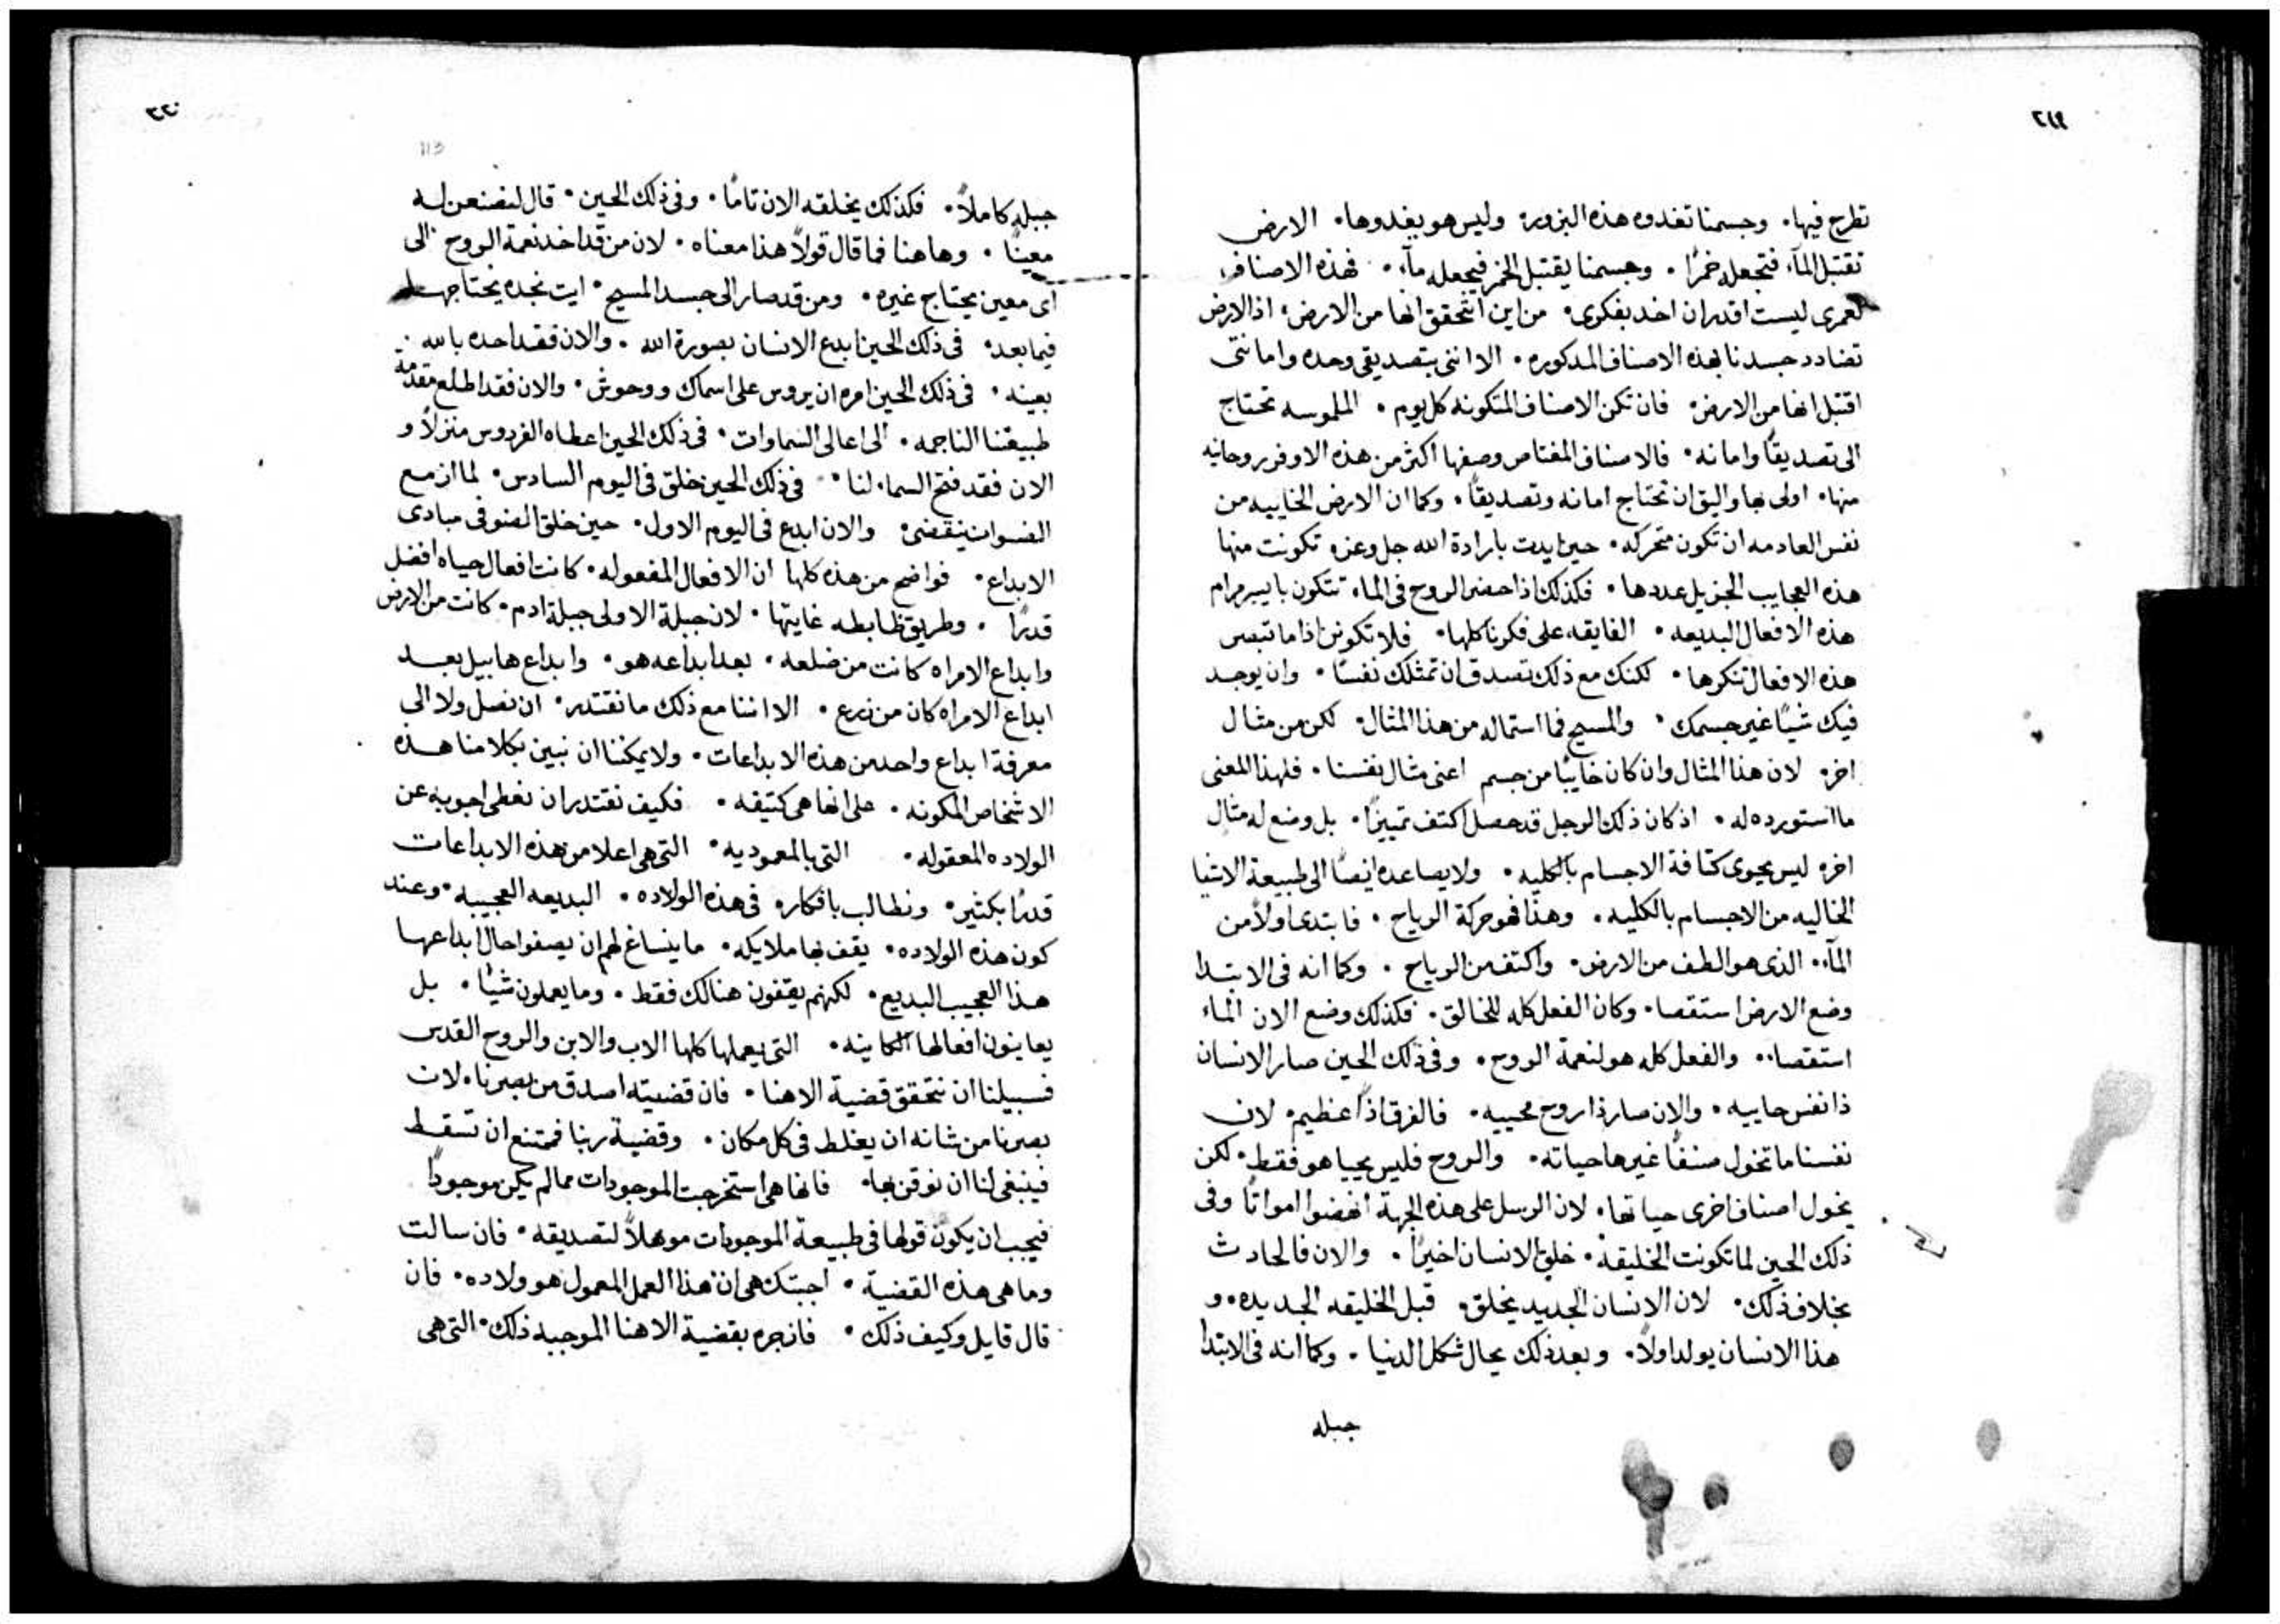 ٢١٩
تطرح فيها. وجسمنا تغدوه هذه البزور، وليس هو يغدوها. الارض
تقتبل المآء فتجعله خمرًا. وجسمنا يقتبل الخمر فيجعله مآء. فهذه الاصناف
لعمرى ليست اقدر ان اخد بفكرى. من اين اتحقق انها من الارض. اذ الارض
تضادد جسدنا بهذه الاصناف المدكوره. الا اننى بتصديقى وحده وامانتى
اقتبل انها من الارض. فان تكن الاصناف المتكونه كل يوم. الملموسه تحتاج
الى تصديقًا وامانه. فالاصناف المغتاص وصفها اكثر من هذه الاوفر روحانيه
منها. اولى بها واليق ان تحتاج امانه وتصديقًا. وكما ان الارض الخاييه من
نفس العادمه ان تكون متحركه. حين ايدت بارادة الله جل وعز. تكونت منها
هذه العجايب الجزيل عددها. فكذلك اذا حضر الروح فى الماء تتكون بايسر مرام
هذه الافعال البديعه. الفايقه على فكرنا كلها. فلا تكونن اذا ما تبصر
هذه الافعال تنكرها. لكنك مع ذلك تصدق ان تمثلك نفسًا. وان يوجد
فيك شيًا غير جسمك. والمسيح فما استماله من هذا المثال. لكن من مثال
اخر. لان هذا المثال وان كان خايبًا من جسم اعنى مثال نفسنا. فلهذا المعنى
ما استورده له. اذ كان ذلك الرجل قد حصل اكثف تمييزًا. بل وضع له مثال
اخر. ليس يحوى كثافة الاجسام بالكليه. ولا يصاعده ايضًا الى طبيعة الاشيا
الخاليه من الاجسام بالكليه. وهذا فهو حركة الرياح. فابتدى اولًا من
المآء. الذى هو الطف من الارض. واكثف من الرياح. وكما انه فى الابتدا
وضع الارض استقصا. وكان الفعل كله للخالق. فكذلك وضع الان الماء
استقصا. والفعل كله هو لنعمة الروح. وفى ذلك الحين صار الانسان
ذا نفس حاييه. والان صار ذا روح محييه. فالفرق اذًا عظيم. لان
نفسنا ما تخول صنفًا غيرها حياته. والروح فليس يحيا هو فقط. لكن
يخول اصناف اخرى حياتها. لان الرسل على هذه الجهة انهضوا امواتًا وفى
ذلك الحين لما تكونت الخليقه. خلق الانسان اخيرًا. والان فالحادث
بخلاف ذلك. لان الانسان الجديد يخلق. قبل الخليقه الجديده. و
هذا الانسان يولد اولًا. وبعد ذلك يحال شكل الدنيا. وكما انه فى الابتدا
جبله
٢٢٠
113
جبله كاملًا. فكذلك يخلقه الان تامًا. وفى ذلك الحين. قال لنصنعن له
معينًا. وهاهنا فما قال قولًا هذا معناه. لان من قد اخد نعمة الروح الى
اى معين يحتاج غيره. ومن قد صار الى جسد المسيح.
فيما بعد. فى ذلك الحين ابدع الانسان بصورة الله. والان فقد احده بالله
بعينه. فى ذلك الحين امره ان يروس على اسماك ووحوش. والان فقد اطلع مقدمة
طبيعتنا الناجمه. الى اعالى السماوات. فى ذلك الحين اعطاه الفردوس منزلًا و
الان فقد فتح السماء لنا. فى ذلك الحين خلق فى اليوم السادس. لما ازمع
ينقضى. والان ابدع فى اليوم الاول. حين خلق الضو فى مبادى
الابداع. فواضح من هذه كلها ان الافعال المفعوله. كانت افعال حياه افضل
قدرًا. وطريق ظابطه غايتها. لان جبلة الاولى جبلة ادم. كانت من الارض
وابداع الامراه كانت من ضلعه. بعد ابداعه هو. وابداع هابيل بعد
ابداع الامراه كان من زرع. الا اننا مع ذلك ما نقتدر. ان نصل ولا الى
معرفة ابداع واحد من هذه الابداعات. ولا يمكننا ان نبين بكلامنا هذه
الاشخاص المكونه. على انها هى كثيفه. فكيف نقتدر ان نعطى اجوبه عن
الولاده المعقوله. التى بالمعموديه. التى هى اعلا من هذه الابداعات
قدرًا بكثير. ونطالب بافكار. فى هذه الولاده. البديعه العجيبه. وعند
كون هذه الولاده. يقف بها ملايكه. ما ينساغ لهم ان يصفوا حال ابداعها
هذا العجيب البديع. لكنهم يقفون هنالك فقط. وما يعملون شيًا. بل
يعاينون افعالها الكاينه. التى يعملها كلها الاب والابن والروح القدس
فسبيلنا ان نتحقق قضية الاهنا. فان قضيته اصدق من بصرنا. لان
بصرنا من شانه ان يغلط فى كل مكان. وقضية ربنا فممتنع ان تسقط
فينبغى لنا ان نوقن بها. فانها هى استخرجت الموجودات مما لم يكن موجودًا
فيجب ان يكون قولها فى طبيعة الموجودات موهلًا لتصديقه. فان سالت
وما هى هذه القضية. اجبتك هى ان هذا العمل المعمول هو ولاده. فان
قال قايل وكيف ذلك. فانجره بقضية الاهنا الموجبه ذلك. التى هى